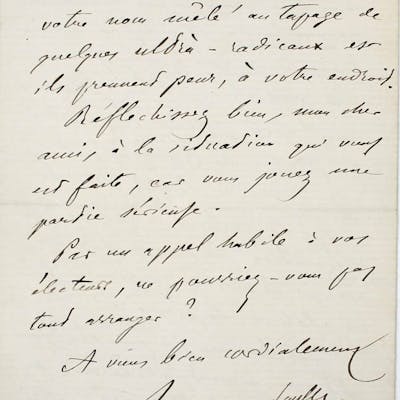 votre nom mêlé au tapage de
quelques ultra-radicaux et
ils prennent peur, à votre endroit.
Réfléchissez bien, mon cher
ami, à la situation qui vous
est faite, car vous jouez une
partie sérieuse.
Par un appel habile à vos
électeurs, ne pourriez-vous pas
tout arranger ?
A vous bien cordialement